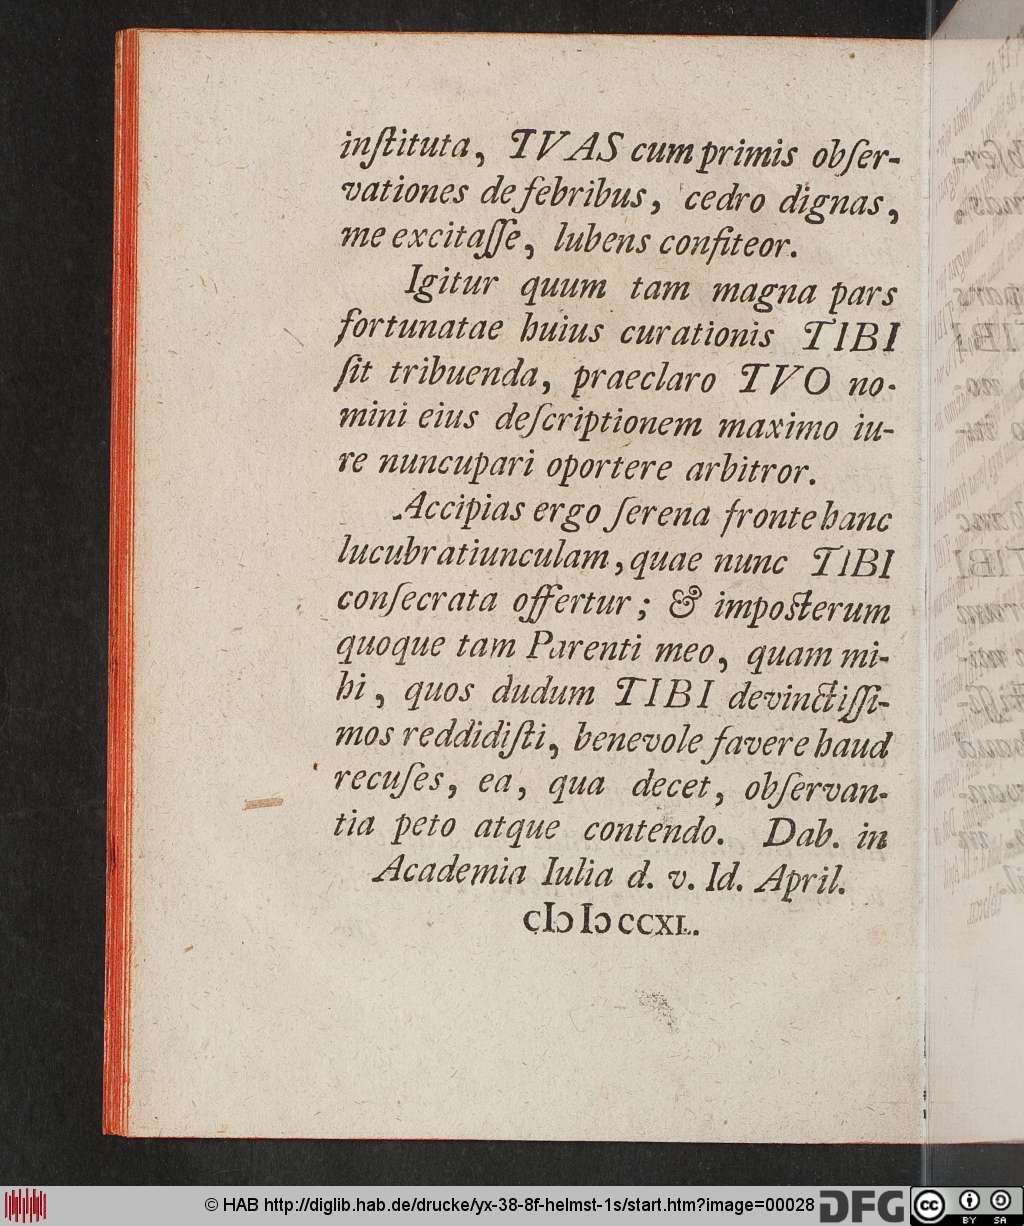 inſtituta, TVAS cum primis obſer-
vationes de febribus, cedro dignas,
me excitaſſe, lubens confiteor.
Igitur quum tam magna pars
fortunatae huius curationis TIBI
ſit tribuenda, praeclaro TVO no-
mini eius deſcriptionem maximo iu-
re nuncupari oportere arbitror.
Accipias ergo ſerena fronte hanc
lucubratiunculam, quae nunc TIBI
conſecrata offertur; & impoſterum
quoque tam Parenti meo, quam mi-
hi, quos dudum TIBI devinctiſſi-
mos reddidiſti, benevole favere haud
recuſes, ea, qua decet, obſervan-
tia peto atque contendo. Dab. in
Academia Iulia d. v. Id. April.
cIↄ Iↄ CCXL.
© HAB http://diglib.hab.de/drucke/yx-38-8f-helmst-1s/start.htm?image=00028 DFG cc BY SA